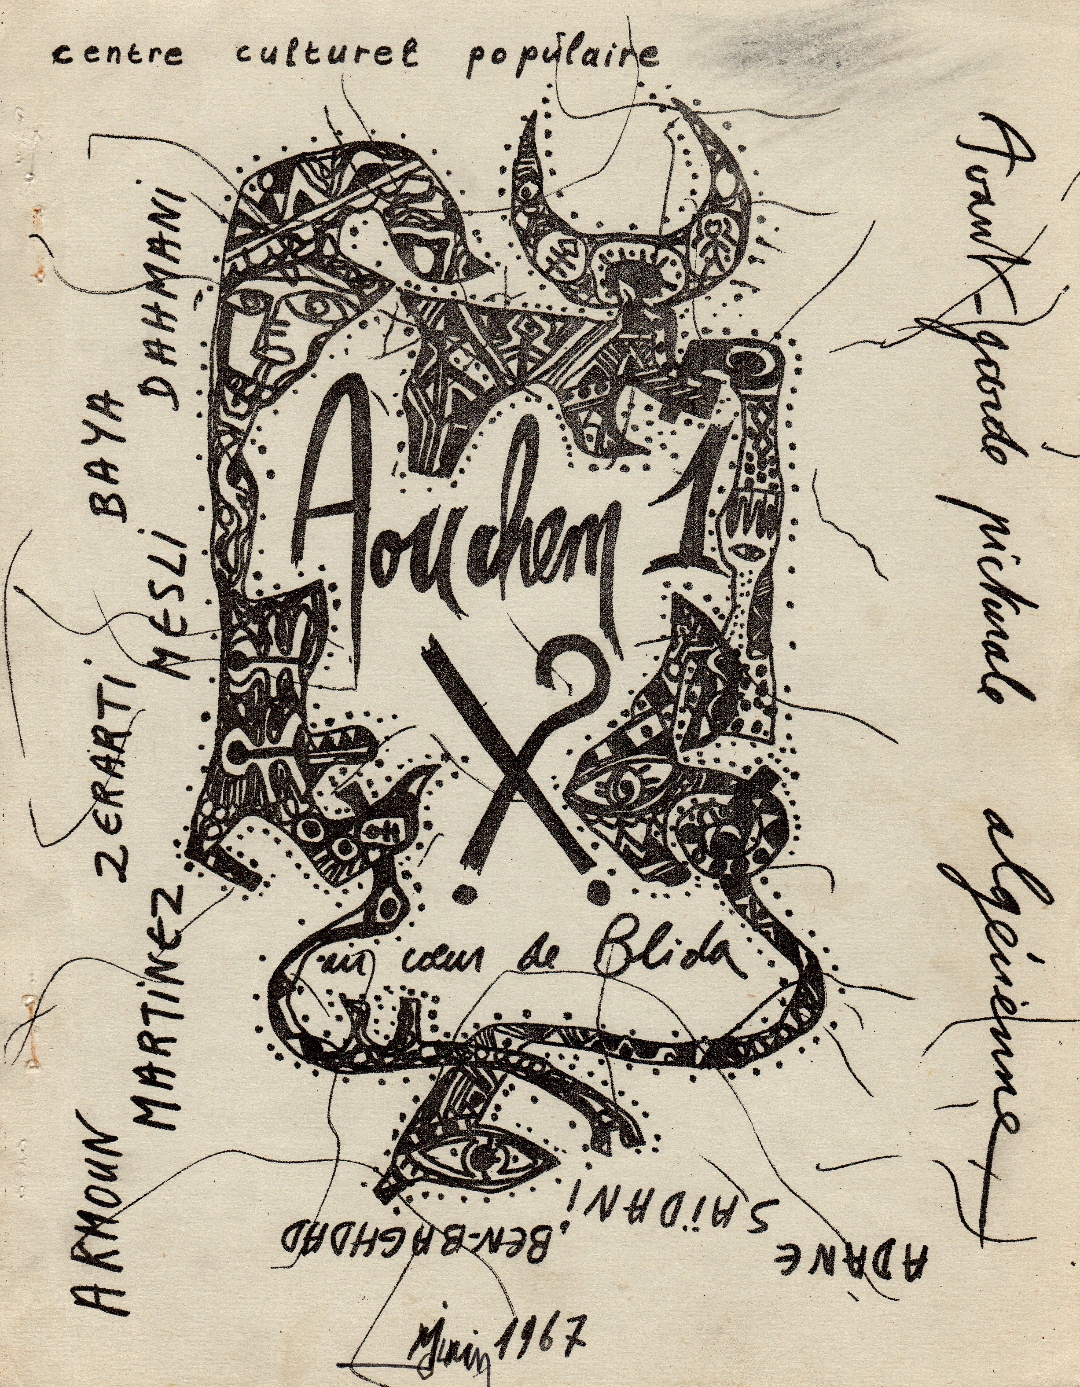 centre culturel populaire
Avant-garde picturale algérienne
DAHMANI
BAYA
MESLI
ZERARTI
MARTINEZ
ARMOUN
Aouchem 1
au cœur de Blida
BEN-BAGHDAD
SAÏDANI
ADANE
Juin 1967